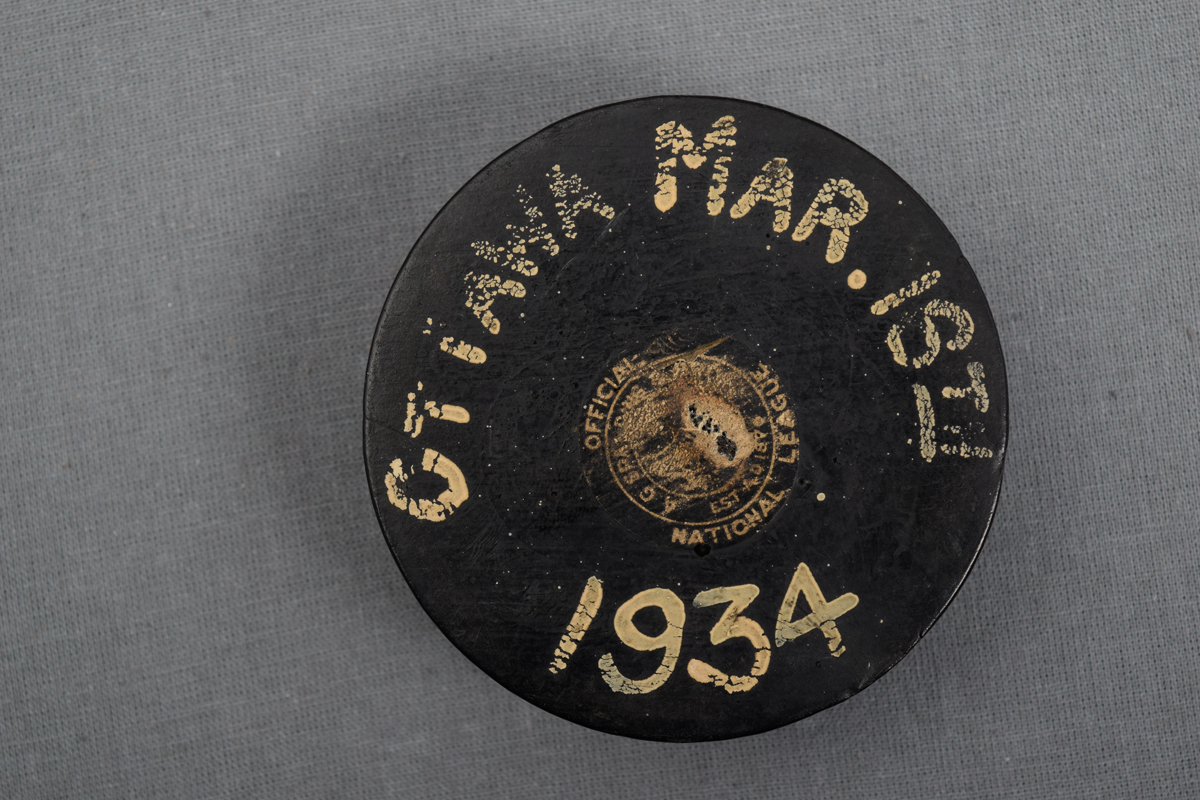 OTTAWA MAR. 15TH
OFFICIAL
NATIONAL LEAGUE
A G
EST
1934